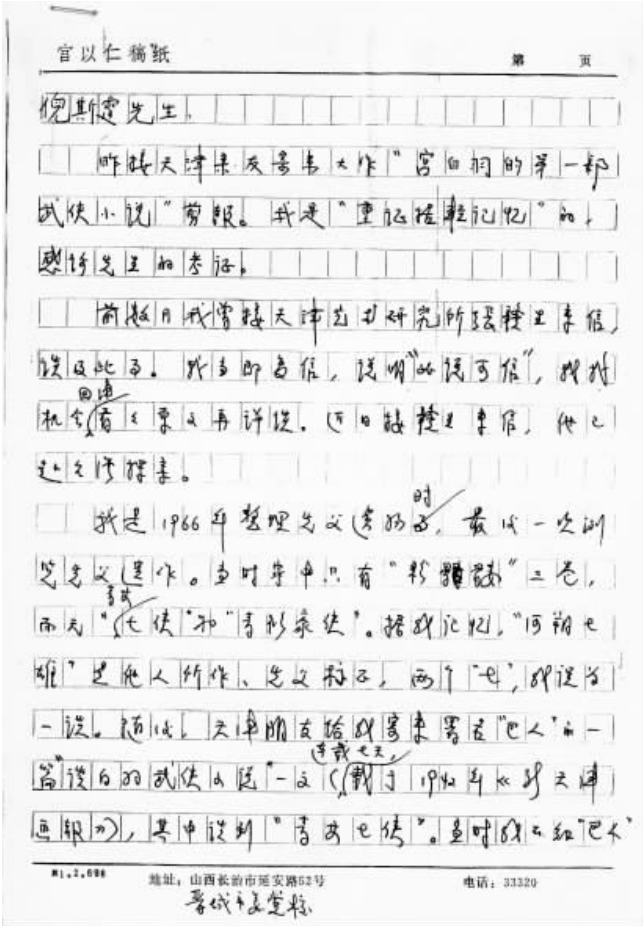 宫以仁稿纸 第 页
倪斯霆先生：
昨接天津朱友寄来大作“宫白羽的第一部
武侠小说”剪报。我是“重证据轻记忆”的，
感谢先生的考证。
前数月我曾接天津艺术研究所张赣生来信，
谈及此事。我当即复信，说明“此说可信”，我找
回津
机会看之原文再详谈。近日接赣生来信，他已
赴台湾探亲。
时
我是1966年整理先父遗物，最后一次浏
览先父遗作。当时家中只有“粉骷髅”三卷，
青衫
而无“七侠”和“青衫豪侠”。据我记忆，“河朔七
雄”是他人所作、先父标正，两个“七”，我误为
一谈。随后，天津朋友给我寄来署名“巴人”的一
连载七天，
篇“谈白羽武侠小说”一文（载于1942年《新天津
画报》），其中谈到“青衫七侠”。当时我不知“巴人”
M1.2.698 地址：山西长治市延安路52号 电话：33320
晋城市委党校